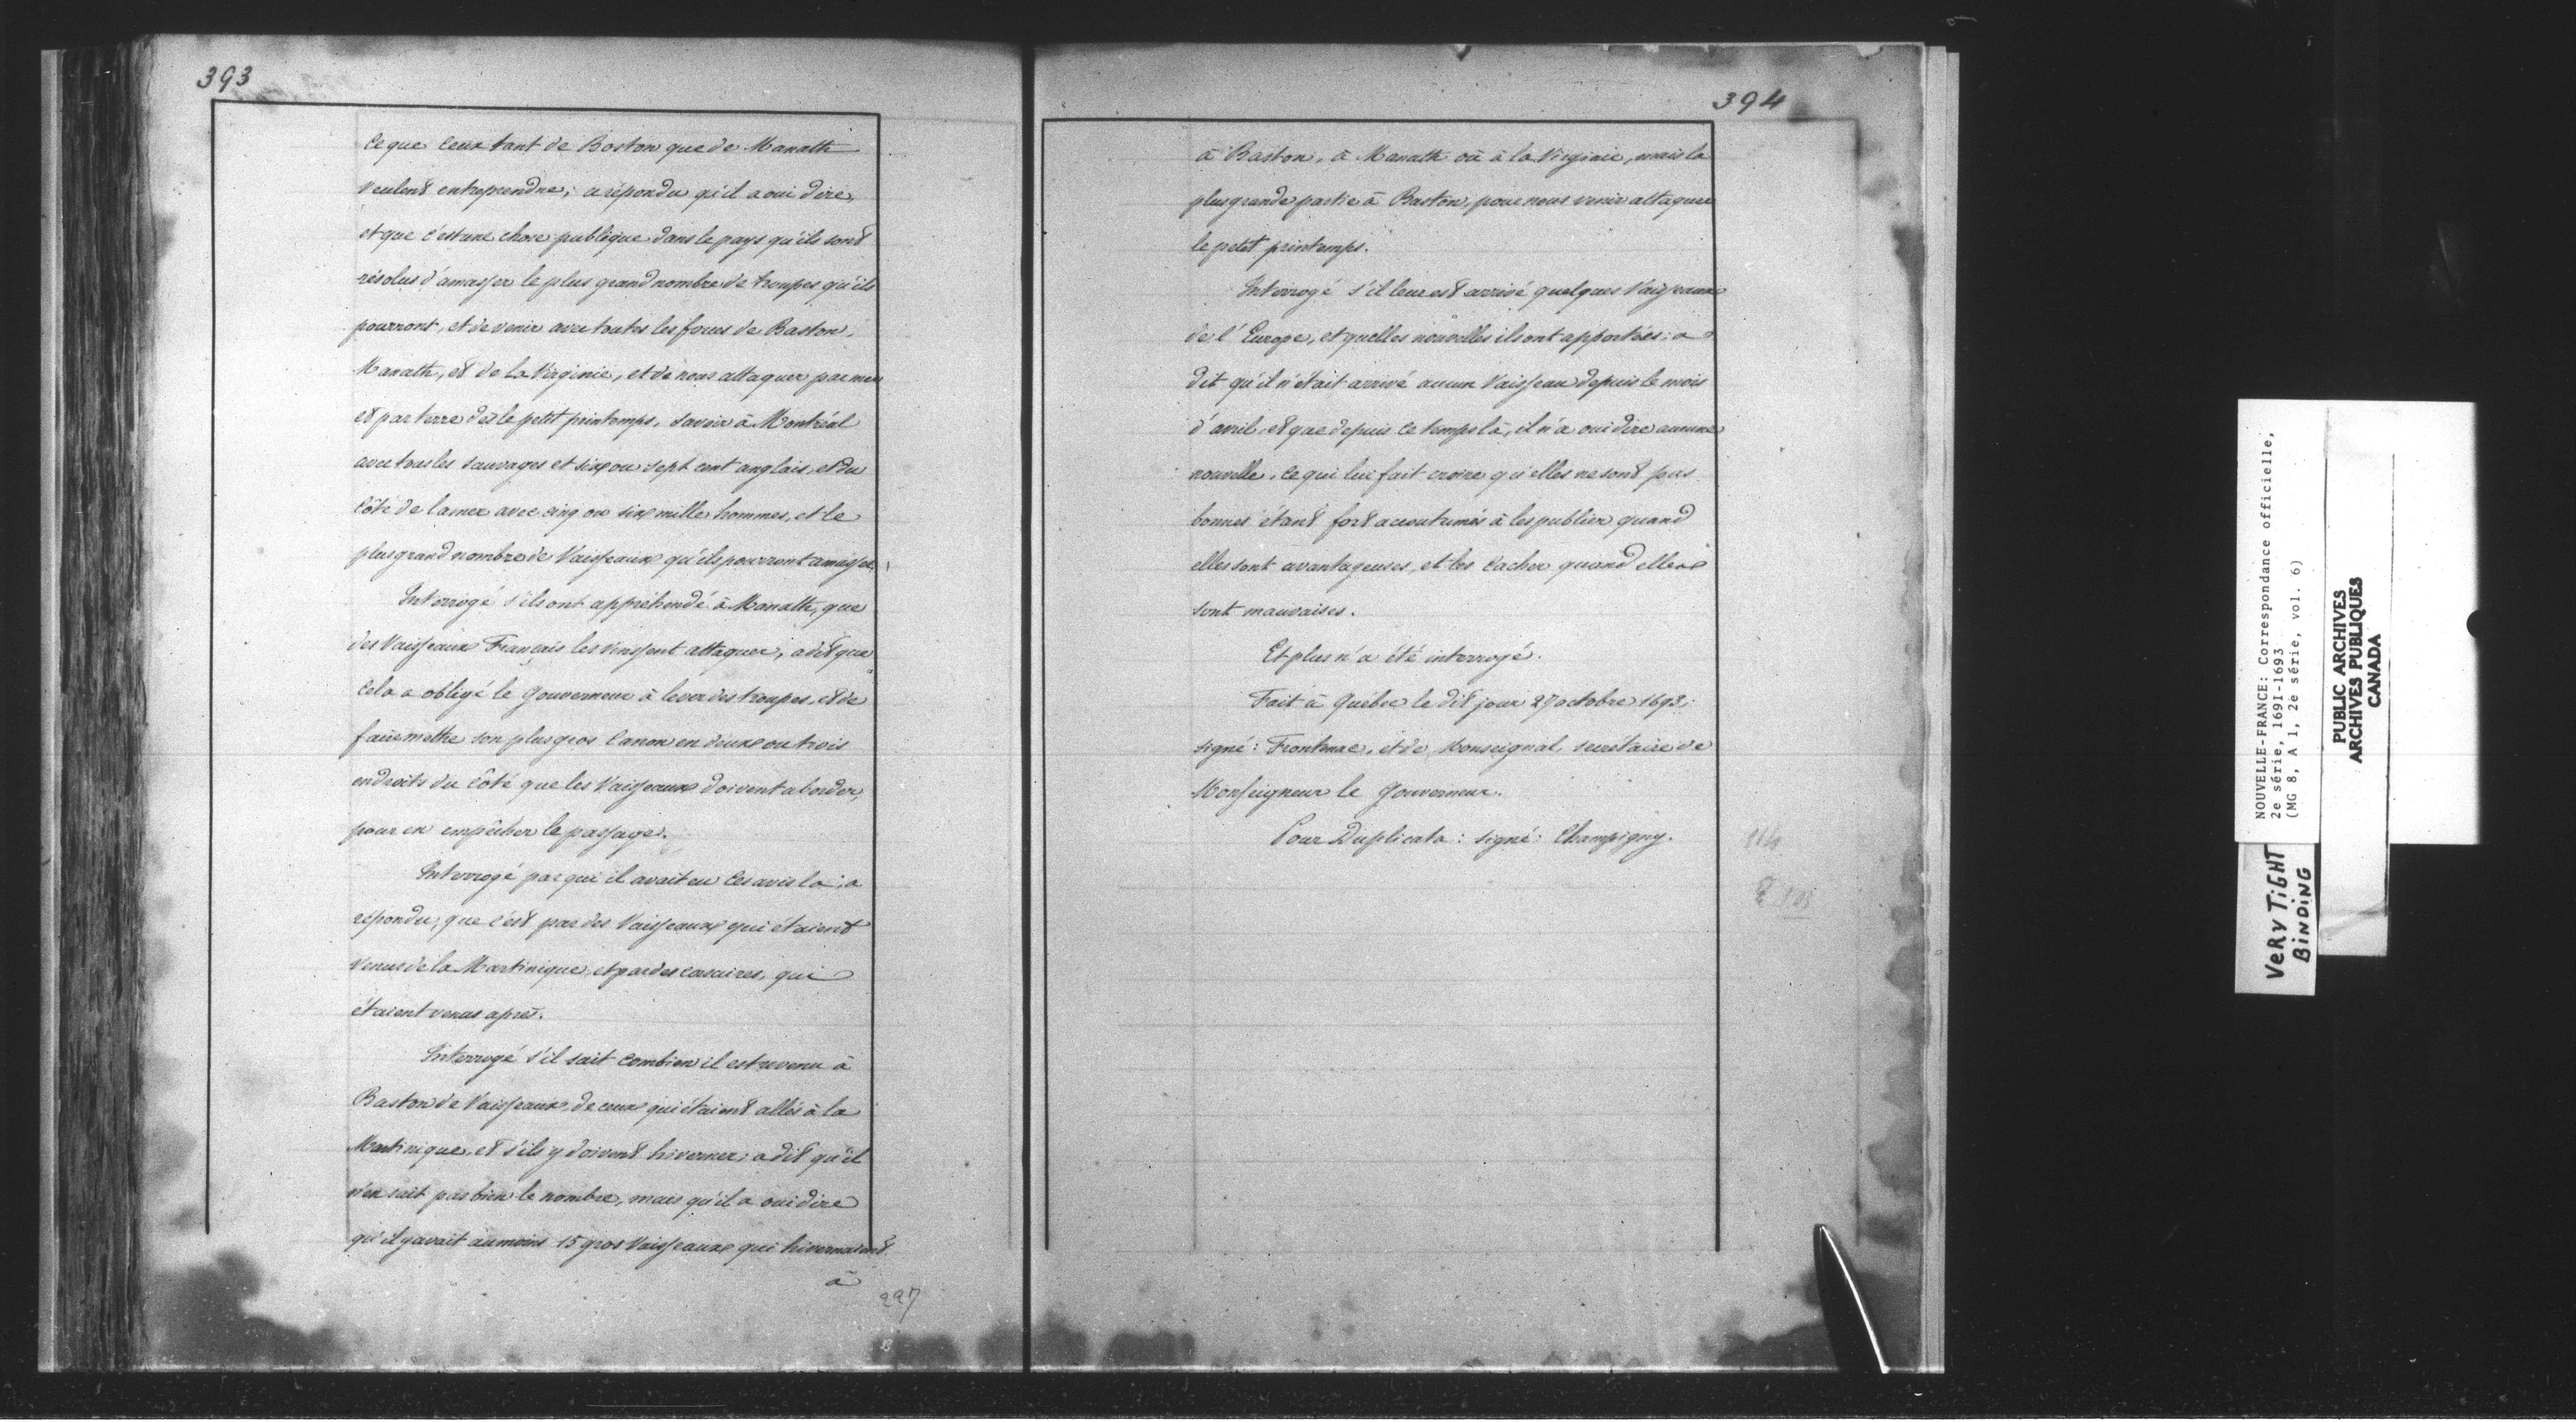 393
ce que ceux tant de Boston que de Manath
veulent entreprendre; a répondu qu'il a oui dire,
et que c'est une chose publique dans le pays qu'ils sont
résolus d'amasser le plus grand nombre de troupes qu'ils
pourront, et de venir avec toutes les forces de Baston,
Manath, et de la Virginie, et de nous attaquer par mer
et par terre dès le petit printemps, savoir à Montréal
avec tous les sauvages et six ou sept cent anglais, et du
côté de la mer avec cinq ou six mille hommes, et le
plus grand nombre de Vaisseaux qu'ils pourront amasser.
Interrogé s'ils ont appréhendé à Manath, que
des Vaisseaux Français les vinssent attaquer, a dit que
cela a obligé le Gouverneur à lever des troupes, et de
faire mettre son plus gros Canon en deux ou trois
endroits du côté que les Vaisseaux doivent aborder,
pour en empêcher le passage.
Interrogé par qui il avait eu ces avis là; a
répondu, que c'est par des Vaisseaux qui étaient
venus de la Martinique, et par des corsaires, qui
étaient venus après.
Interrogé s'il sait combien il est revenu à
Baston de Vaisseaux, de ceux qui étaient allés à la
Martinique, et s'ils y doivent hiverner; a dit qu'il
n'en sait pas bien le nombre, mais qu'il a oui dire
qu'il y avait au moins 15 gros Vaisseaux qui hivernaient
à
227
394
à Baston, à Manath où à la Virginie, mais la
plus grande partie à Baston, pour nous venir attaquer
le petit printemps.
Interrogé s'il leur est arrivé quelques Vaisseaux
de l'Europe, et quelles nouvelles ils ont apportées; a
dit qu'il n'était arrivé aucun Vaisseau depuis le mois
d'avril, et que depuis ce temps là, il n'a oui dire aucune
nouvelle, ce qui lui fait croire qu'elles ne sont pas
bonnes étant fort accoutumés à les publier quand
elles sont avantageuses, et les cacher quand elles
sont mauvaises.
Et plus n'a été interrogé.
Fait à Québec le dit jour 27 octobre 1693,
signé: Frontenac, et de Monseignal, secrétaire de
Monseigneur le Gouverneur.
Pour Duplicata: signé: Champigny.
NOUVELLE-FRANCE: Correspondance officielle,
2e série, 1691-1693
(MG 8, A 1, 2è série, vol. 6)
PUBLIC ARCHIVES
ARCHIVES PUBLIQUES
CANADA
VERY TIGHT
BINDING